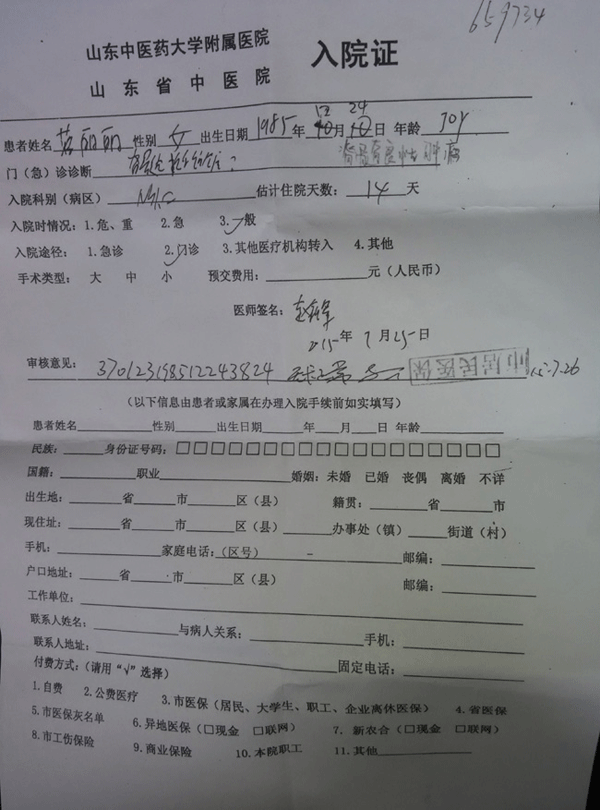 659734
山东中医药大学附属医院
山东省中医院
入院证
患者姓名 丽丽 性别 女 出生日期 1985 年 12 月 24 日 年龄 30y
门（急）诊诊断
入院科别（病区） 估计住院天数： 14 天
入院时情况：1.危、重 2.急 3.一般
入院途径： 1.急诊 2.门诊 3.其他医疗机构转入 4.其他
手术类型： 大 中 小 预交费用： 元（人民币）
医师签名：
2015 年 7 月 25 日
审核意见： 370123198512243824 市居民医保 15.7.26
（以下信息由患者或家属在办理入院手续前如实填写）
患者姓名 性别 出生日期 年 月 日 年龄
民族： 身份证号码：□□□□□□□□□□□□□□□□□□
国籍： 职业 婚姻：未婚 已婚 丧偶 离婚 不详
出生地： 省 市 区（县） 籍贯： 省 市
现住址： 省 市 区（县） 办事处（镇） 街道（村）
手机： 家庭电话：（区号） － 邮编：
户口地址： 省 市 区（县） 邮编：
工作单位：
联系人姓名： 与病人关系： 手机：
联系人地址： 固定电话：
付费方式：（请用“√”选择）
1.自费 2.公费医疗 3.市医保（居民、大学生、职工、企业离休医保） 4.省医保
5.市医保灰名单 6.异地医保（□现金 □联网） 7.新农合（□现金 □联网）
8.市工伤保险 9.商业保险 10.本院职工 11.其他